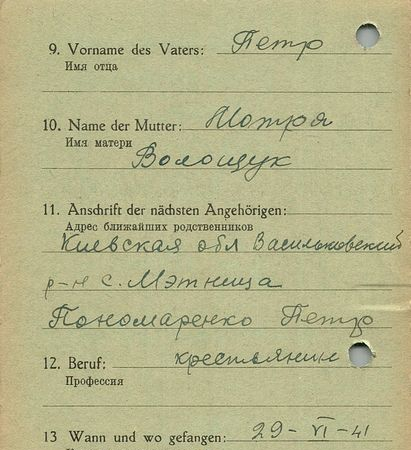 9. Vorname des Vaters: Петр
Имя отца
10. Name der Mutter: Мотря
Имя матери
Волощук
11. Anschrift der nächsten Angehörigen:
Адрес ближайших родственников
Киевская обл Васильковский
р-н с. Мэтница
Пономаренко Петр
12. Beruf: крестьянин
Профессия
13 Wann und wo gefangen: 29-VI-41